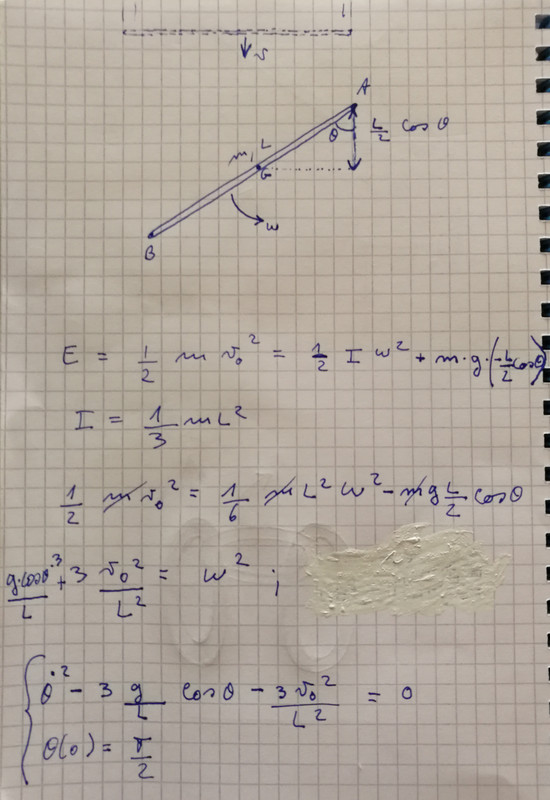 v
A
θ
L/2 cos θ
m, L
G
ω
B
E = 1/2 m v₀² = 1/2 I ω² + m·g·(-L/2 cosθ)
I = 1/3 m L²
1/2 m v₀² = 1/6 m L² ω² - m g L/2 cosθ
g·cosθ·3/L + 3 v₀²/L² = ω² ;
θ̇² - 3 g/L cosθ - 3v₀²/L² = 0
θ(0) = π/2